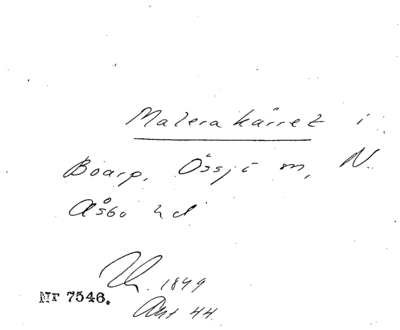 Malera kärret i
Boarp, Össjö m, N.
Åsbo hd
1849
Nr 7546.
Akt 44.